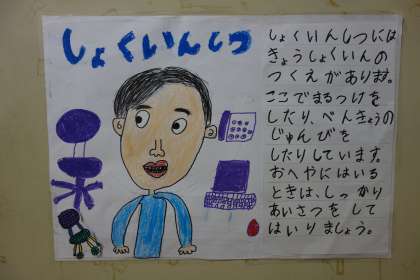 しょくいんしつ
しょくいんしつには
きょうしょくいんの
つくえがあります。
ここでまるつけを
したり、べんきょうの
じゅんびを
したりしています。
おへやにはいる
ときは、しっかり
あいさつをして
はいりましょう。